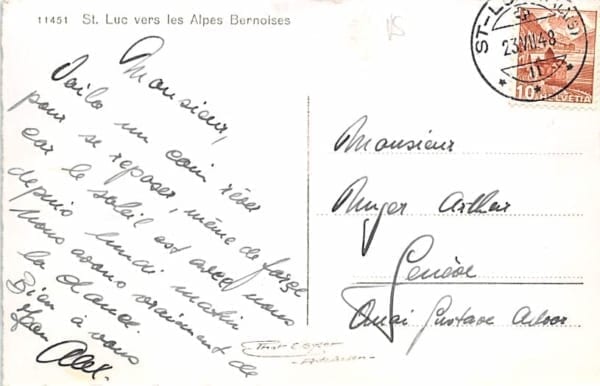 11451 St. Luc vers les Alpes Bernoises
Monsieur,
Voila un coin rêver
pour se reposer, même de force
car le soleil est avec nous
depuis lundi matin
Nous avons vraiment de
la chance.
Bien à vous
Alex.
ST-LUC
23.VII.48
11
10
HELVETIA
Monsieur
Arthur
Genève
Quai Gustave Ador